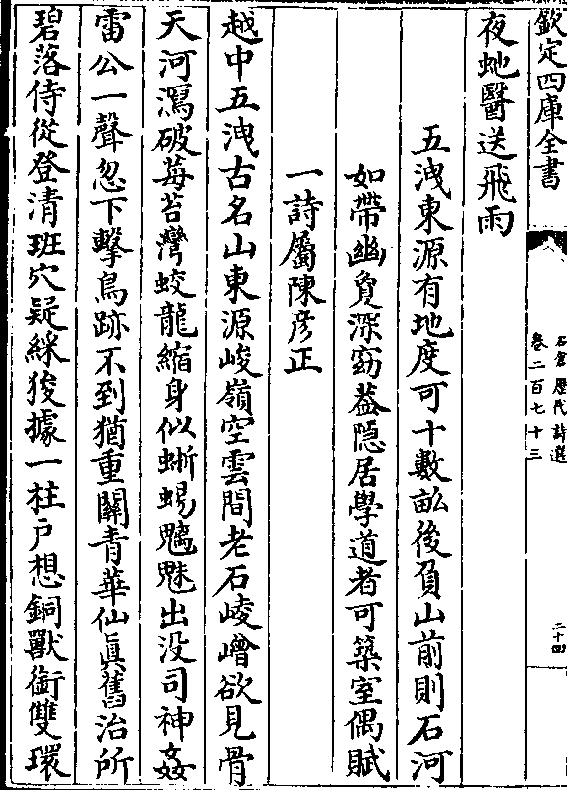 欽定四庫全書
石倉歷代詩選
卷二百七十三
二十四
夜虵醫送飛雨
五洩東源有地度可十數畝後負山前則石河
如帶幽夐深窈葢隐居學道者可築室偶賦
一詩屬陳彦正
越中五洩古名山東源峻嶺空雲間老石崚嶒欲見骨
天河瀉破莓苔灣蛟龍縮身似蜥蜴魑魅出没司神姦
雷公一聲忽下擊鳥跡不到猶重關青華仙真舊治所
碧落侍從登清班穴疑綵狻據一柱戸想銅獸銜雙環